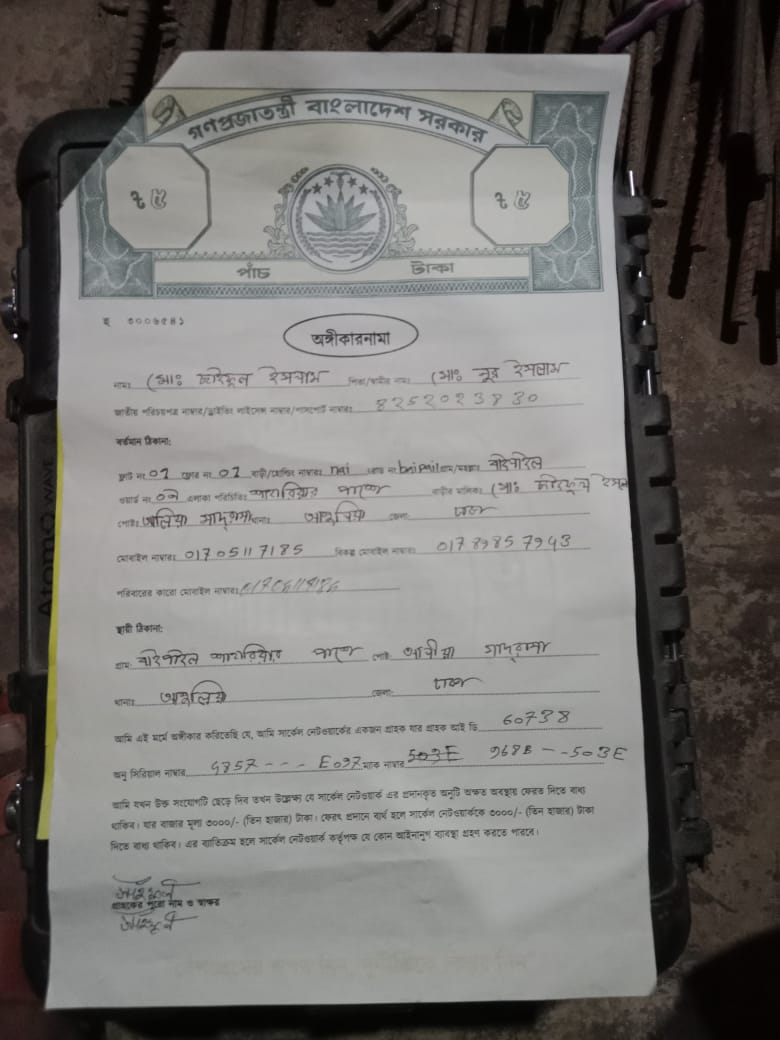 গণপ্রজাতন্ত্রী বাংলাদেশ সরকার
৳ ৫ ৳ ৫
পাঁচ টাকা
৩০০৬৫৪১
অঙ্গীকারনামা
নামঃ মোঃ ইসলাম পিতা/স্বামীর নামঃ মোঃ নুর ইসলাম
জাতীয় পরিচয়পত্র নাম্বার/ড্রাইভিং লাইসেন্স নাম্বার/পাসপোর্ট নাম্বারঃ 8252023830
বর্তমান ঠিকানা:
ফ্লাট নং 01 ফ্লোর নং 01 বাড়ী/হোল্ডিং নাম্বারঃ nai রোড নং baipail গ্রাম/মহল্লাঃ বাইপাইল
ওয়ার্ড নং এলাকা পরিচিতিঃ পাশে বাড়ীর মালিকঃ মোঃ
পোষ্টঃ মাদ্রাসা থানাঃ আশুলিয়া জেলাঃ ঢাকা
মোবাইল নাম্বারঃ 01705117185 বিকল্প মোবাইল নাম্বারঃ 01789857943
পরিবারের কারো মোবাইল নাম্বারঃ
স্থায়ী ঠিকানা:
গ্রামঃ বাইপাইল পাশে পোষ্টঃ মাদ্রাসা
থানাঃ আশুলিয়া জেলাঃ ঢাকা
আমি এই মর্মে অঙ্গীকার করিতেছি যে, আমি সার্কেল নেটওয়ার্কের একজন গ্রাহক যার গ্রাহক আই ডি 60738
অনু সিরিয়াল নাম্বার 4857 - - - E097 ম্যাক নাম্বার 503E 968B - - 503E
আমি যখন উক্ত সংযোগটি ছেড়ে দিব তখন উল্লেক্ষ্য যে সার্কেল নেটওয়ার্ক এর প্রদানকৃত অনুটি অক্ষত অবস্থায় ফেরত দিতে বাধ্য
থাকিব। যার বাজার মূল্য ৩০০০/- (তিন হাজার) টাকা। ফেরৎ প্রদানে ব্যর্থ হলে সার্কেল নেটওয়ার্ককে ৩০০০/- (তিন হাজার) টাকা
দিতে বাধ্য থাকিব। এর ব্যাতিক্রম হলে সার্কেল নেটওয়ার্ক কর্তৃপক্ষ যে কোন আইনানুগ ব্যাবস্থা গ্রহণ করতে পারবে।
গ্রাহকের পুরো নাম ও স্বাক্ষর
AtomO WAVE